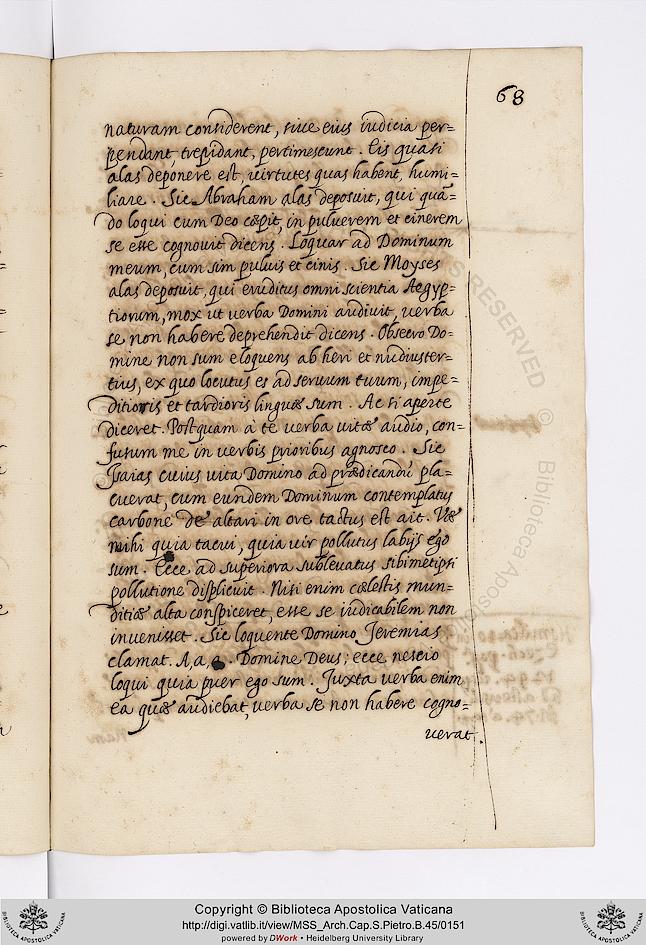 68
naturam considerent, siue eius iudicia per=
pendant, trepidant, pertimescunt. Eis quasi
alas deponere est, uirtutes quas habent, humi=
liare. Sic Abraham alas deposuit, qui quā=
do loqui cum Deo cœpit, in puluerem et cinerem
se esse cognouit dicens. Loquar ad Dominum
meum, cum sim puluis et cinis. Sic Moyses
alas deposuit, qui eruditus omni scientia Aegyp=
tiorum, mox ut uerba Domini audiuit, uerba
se non habere deprehendit dicens. Obsecro Do=
mine non sum eloquens ab heri et nudiuster=
tius, ex quo locutus es ad seruum tuum, impe=
ditioris et tardioris linguæ sum. Ac si aperte
diceret. Postquam a te uerba uitæ audio, con=
fusum me in uerbis prioribus agnosco. Sic
Isaias cuius uita Domino ad prædicandū pla=
cuerat, cum eundem Dominum contemplatus
carbone de altari in ore tactus est ait. Væ
mihi quia tacui, quia uir pollutus labijs ego
sum. Ecce ad superiora subleuatus sibimetipsi
pollutione displicuit. Nisi enim cælestis mun=
ditiæ alta conspiceret, esse se iudicabilem non
inuenisset. Sic loquente Domino Jeremias
clamat. A, a, a. Domine Deus; ecce nescio
loqui quia puer ego sum. Juxta uerba enim
ea quæ audiebat, uerba se non habere cogno=
uerat.
RESERVED © Biblioteca Apostolica
Copyright © Biblioteca Apostolica Vaticana
http://digi.vatlib.it/view/MSS_Arch.Cap.S.Pietro.B.45/0151
powered by DWork • Heidelberg University Library
BIBLIOTECA APOSTOLICA VATICANA
BIBLIOTECA APOSTOLICA VATICANA